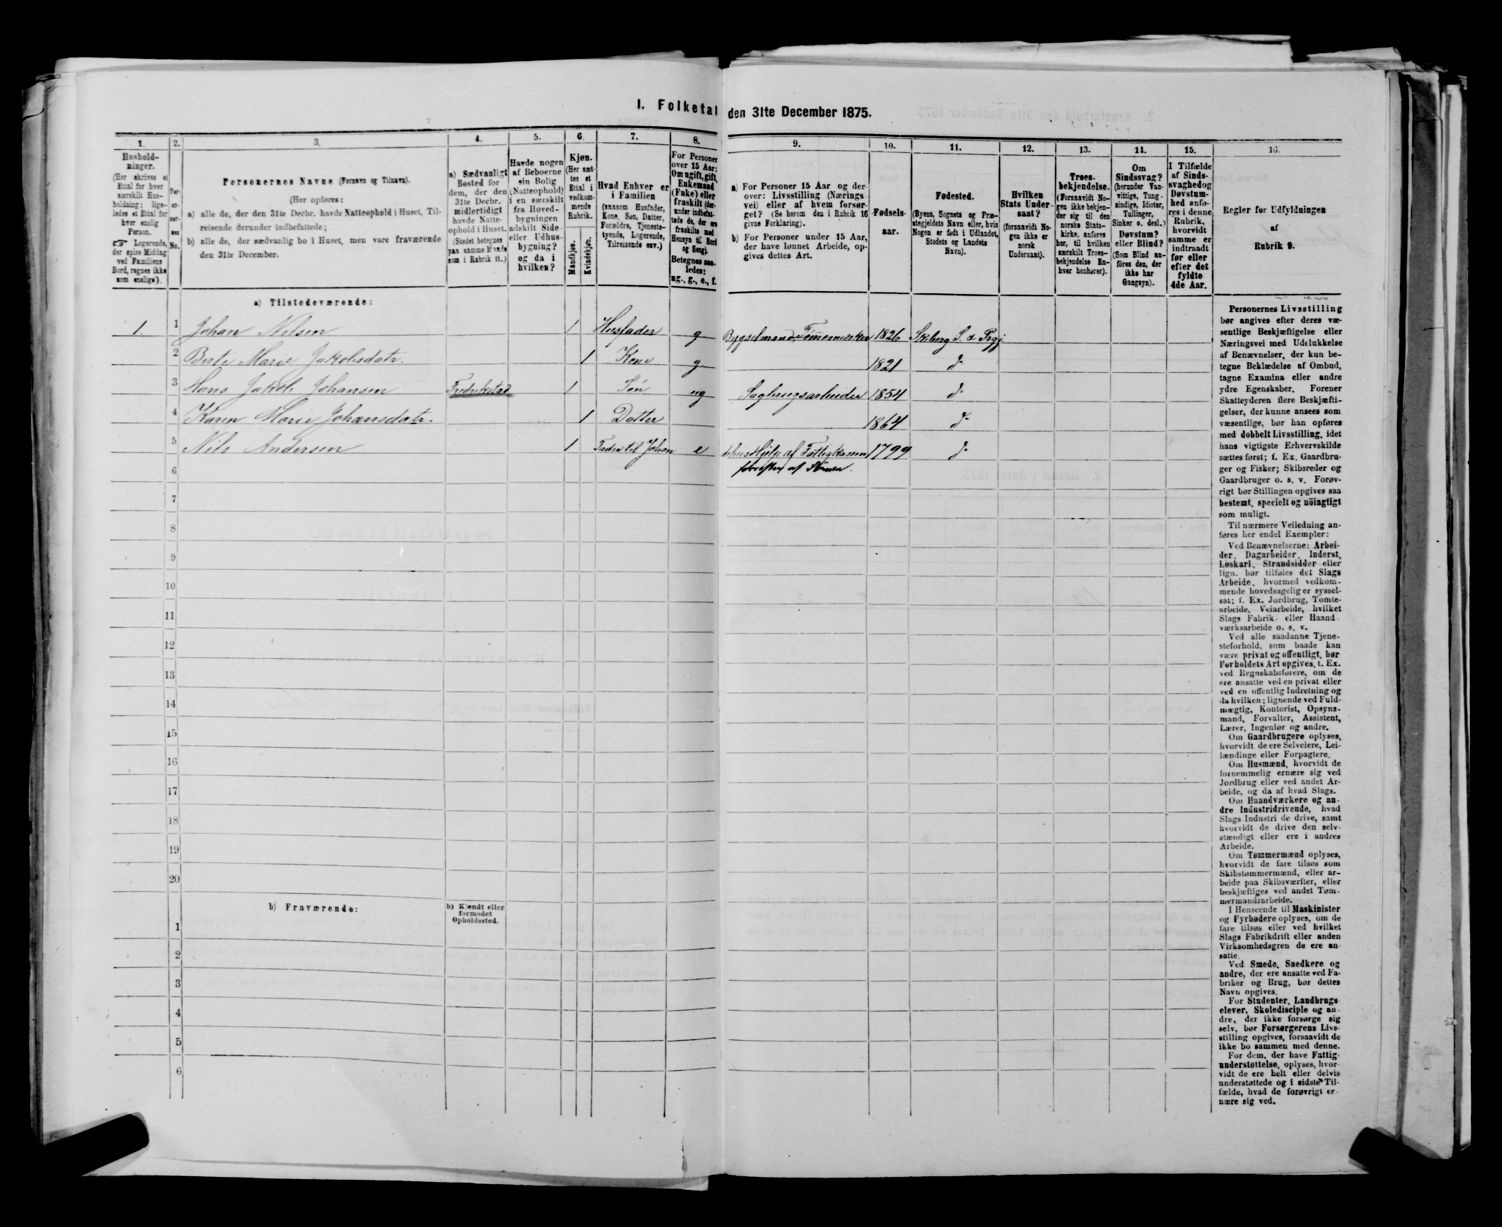 I. Folketal den 31te December 1875.
1.
Hushold-
ninger.
(Her skrives et
Ettal for hver
særskilt Hus-
holdning; lige-
ledes et Ettal for
hver enslig
Person.
Logerende,
der spise Middag
ved Familiens
Bord, regnes ikke
som enslige).
2.
Per-
soner-
nes
No.
3.
Personernes Navne (Fornavn og Tilnavn).
(Her opføres:
a) alle de, der den 31te Decbr. havde Natteophold i Huset, Til-
reisende derunder indbefattede;
b) alle de, der sædvanlig bo i Huset, men vare fraværende
den 31te December.
4.
a) Sædvanligt
Bosted for
dem, der den
31te Decbr.
midlertidigt
havde Natte-
ophold i Huset.
(Stedet betegnes
paa samme Maade
som i Rubrik 11.)
5.
Havde nogen
af Beboerne
sin Bolig
(Natteophold)
i en særskilt
fra Hoved-
bygningen
adskilt Side-
eller Udhus-
bygning?
og da i
hvilken?
6.
Kjøn.
(Her sæt-
tes et
Ettal i
vedkom-
mende
Rubrik.
Mandkjøn.
Kvindekjøn.
7.
Hvad Enhver er
i Familien
(saasom Husfader,
Kone, Søn, Datter,
Forældre, Tjeneste-
tyende, Logerende,
Tilreisende osv.)
8.
For Personer
over 15 Aar:
Om ugift, gift,
Enkemand
(Enke) eller
fraskilt (der-
under indbefat-
tede de, der ere
fraskilte med
Hensyn til Bord
og Seng).
Betegnes saa-
ledes:
ug., g., e., f.
9.
a) For Personer 15 Aar og der-
over: Livsstilling (Nærings
vei) eller af hvem forsør-
get? (Se herom den i Rubrik 16
givne Forklaring).
b) For Personer under 15 Aar,
der have lønnet Arbeide, op-
gives dettes Art.
10.
Fødsels-
aar.
11.
Fødested.
(Byens, Sognets og Præ-
stegjeldets Navn eller, hvis
Nogen er født i Udlandet,
Stedets og Landets
Navn).
12.
Hvilken
Stats Under-
saat?
(forsaavidt No-
gen ikke er
norsk
Undersaat).
13.
Troes-
bekjendelse.
(Forsaavidt No-
gen ikke bekjen-
der sig til den
norske Stats-
kirke, anføres
her, til hvilken
særskilt Troes-
bekjendelse En-
hver henhører).
14.
Om
Sindssvag?
(herunder Van-
vittige, Tung-
sindige, Idioter,
Tullinger,
Sinker o. desl.)
Døvstum?
eller Blind?
(Som Blind an-
føres den, der
ikke har
Gangsyn).
15.
I Tilfælde
af Sinds-
svaghed og
Døvstum-
hed anfø-
res i denne
Rubrik,
hvorvidt
samme er
indtraadt
før eller
efter det
fyldte
4de Aar.
16.
Regler for Udfyldningen
af
Rubrik 9.
a) Tilstedeværende:
1 1 Johan Nilsen 1 Husfader g Bygselmand, Tømmersker 1826 Skiberg S. & Prgj.
2 Berte Marie Jakobsdatr. 1 Kone g 1821 d°
3 Hans Jakob Johansen Fredrikstad 1 Søn ug Sagbrugsarbeider 1854 d°
4 Karen Marie Johansdatr. 1 Datter 1864 d°
5 Nils Andersen 1 Fader til Johan e Hjelp af Fattigkassen 1799 d°
af Sønnen.
6
7
8
9
10
11
12
13
14
15
16
17
18
19
20
b) Fraværende:
b) Kjendt eller
formodet
Opholdssted.
1
2
3
4
5
6
Personernes Livsstilling
bør angives efter deres væ-
sentlige Beskjæftigelse eller
Næringsvei med Udelukkelse
af Benævnelser, der kun be-
tegne Beklædelse af Ombud,
tagne Examina eller andre
ydre Egenskaber. Forener
Skatteyderen flere Beskjæfti-
gelser, der kunne ansees som
væsentlige, bør han opføres
med dobbelt Livsstilling, idet
hans vigtigste Erhvervskilde
sættes først; f. Ex. Gaardbru-
ger og Fisker; Skibsreder og
Gaardbruger o. s. v. Forøv-
rigt bør Stillingen opgives saa
bestemt, specielt og nøiagtigt
som muligt.
Til nærmere Veiledning an-
føres her endel Exempler:
Ved Benævnelserne: Arbei-
der, Dagarbeider, Inderst,
Løskarl, Strandsidder eller
lign. bør tilføies det Slags
Arbeide, hvormed vedkom-
mende hovedsagelig er syssel-
sat; f. Ex. Jordbrug, Tomte-
arbeide, Veiarbeide, hvilket
Slags Fabrik- eller Haand-
værksarbeide o. s. v.
Ved alle saadanne Tjene-
steforhold, som baade kan
være privat og offentligt, bør
Forholdets Art opgives, t. Ex.
ved Regnskabsførere, om de
ere ansatte ved en privat eller
ved en offentlig Indretning og
da hvilken; lignende ved Fuld-
mægtig, Kontorist, Opsyns-
mand, Forvalter, Assistent,
Lærer, Ingeniør og andre.
Om Gaardbrugere oplyses,
hvorvidt de ere Selveiere, Lei-
lændinge eller Forpagtere.
Om Husmænd, hvorvidt de
fornemmelig ernære sig ved
Jordbrug eller ved andet Ar-
beide, og da af hvad Slags.
Om Haandværkere og an-
dre Industridrivende, hvad
Slags Industri de drive, samt
hvorvidt de drive den selv-
stændigt eller ere i andres
Arbeide.
Om Tømmermænd oplyses,
hvorvidt de fare tilsøs som
Skibstømmermænd, eller ar-
beide paa Skibsværfter, eller
beskjæftiges ved andet Tøm-
mermandsarbeide.
I Henseende til Maskinister
og Fyrbødere oplyses, om de
fare tilsøs eller ved hvilket
Slags Fabrikdrift eller anden
Virksomhedsgren de ere an-
satte.
Ved Smede, Snedkere og
andre, der ere ansatte ved Fa-
briker og Brug, bør dettes
Navn opgives.
For Studenter, Landbrugs-
elever, Skoledisciple og an-
dre, der ikke forsørge sig
selv, bør Forsørgerens Livs-
stilling opgives, forsaavidt de
ikke bo sammen med denne.
For dem, der have Fattig-
understøttelse, oplyses, hvor-
vidt de ere helt eller delvis
understøttede og i sidste Til-
fælde, hvad de forøvrigt er-
nære sig ved.